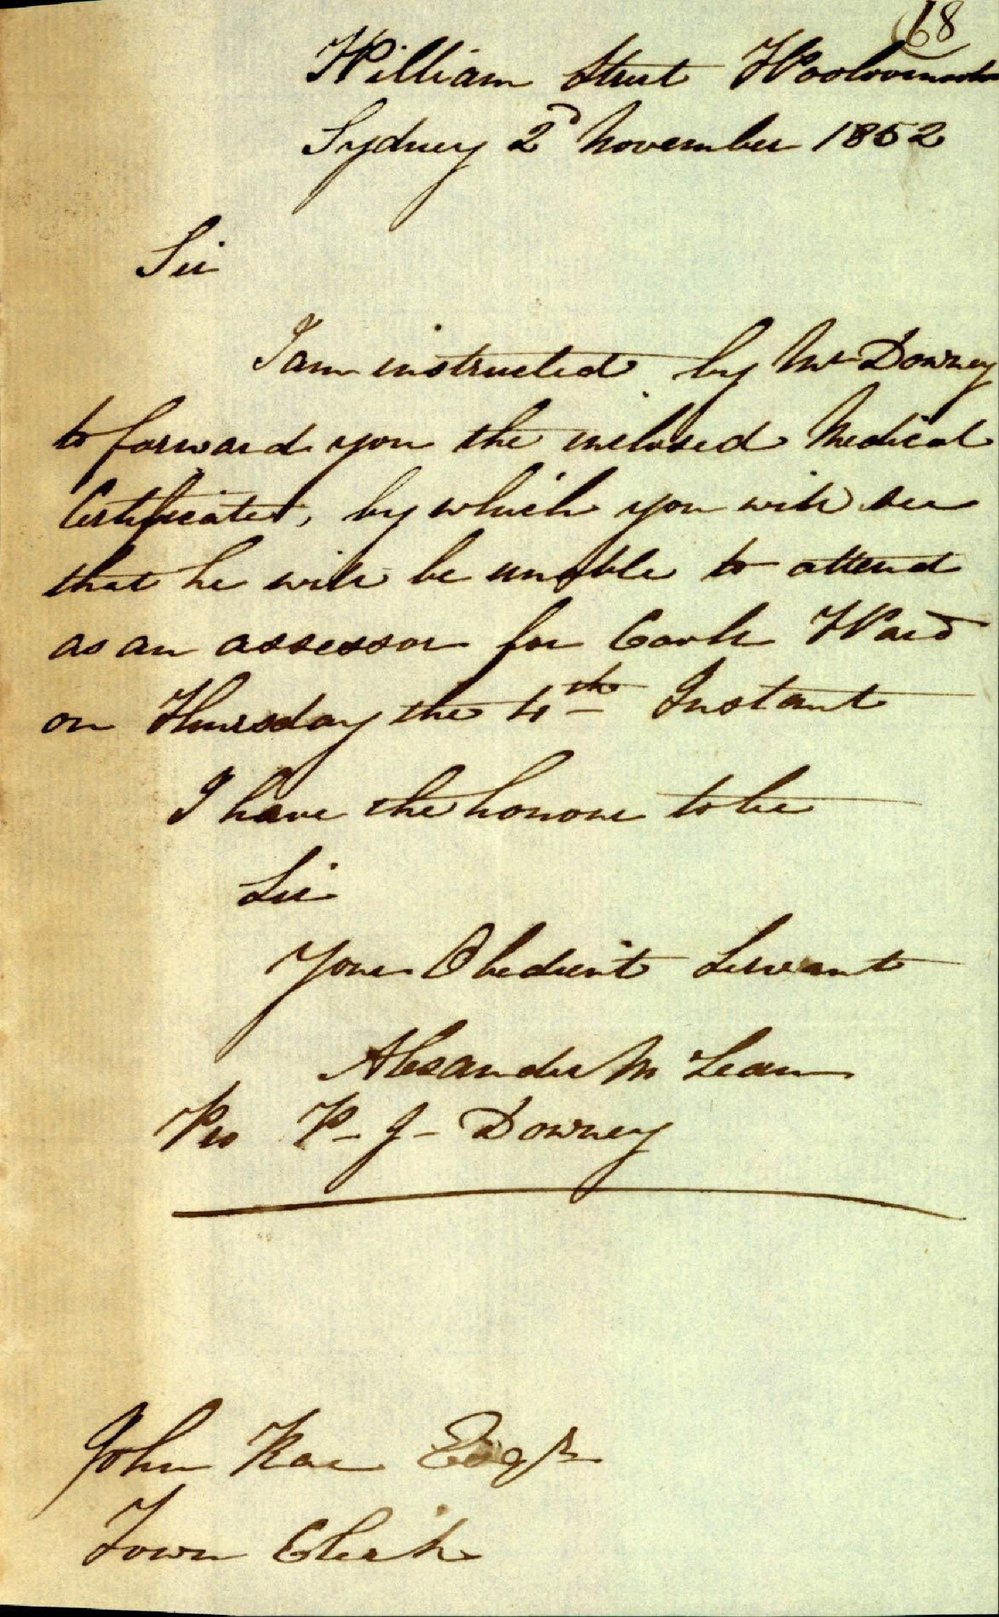 68
William Street Wooloomooloo
Sydney 2d November 1852
Sir
I am instructed by Mr Downey
to forward you the inclosed Medical
Certificate, by which you will see
that he will be unable to attend
as an assessor for Cook Ward
on Thursday the 4th Instant
I have the honour to be
Sir
Your Obedient Servant
Alexander M Lean
Pro P - J - Downey
John Rae Esqr
Town Clerk